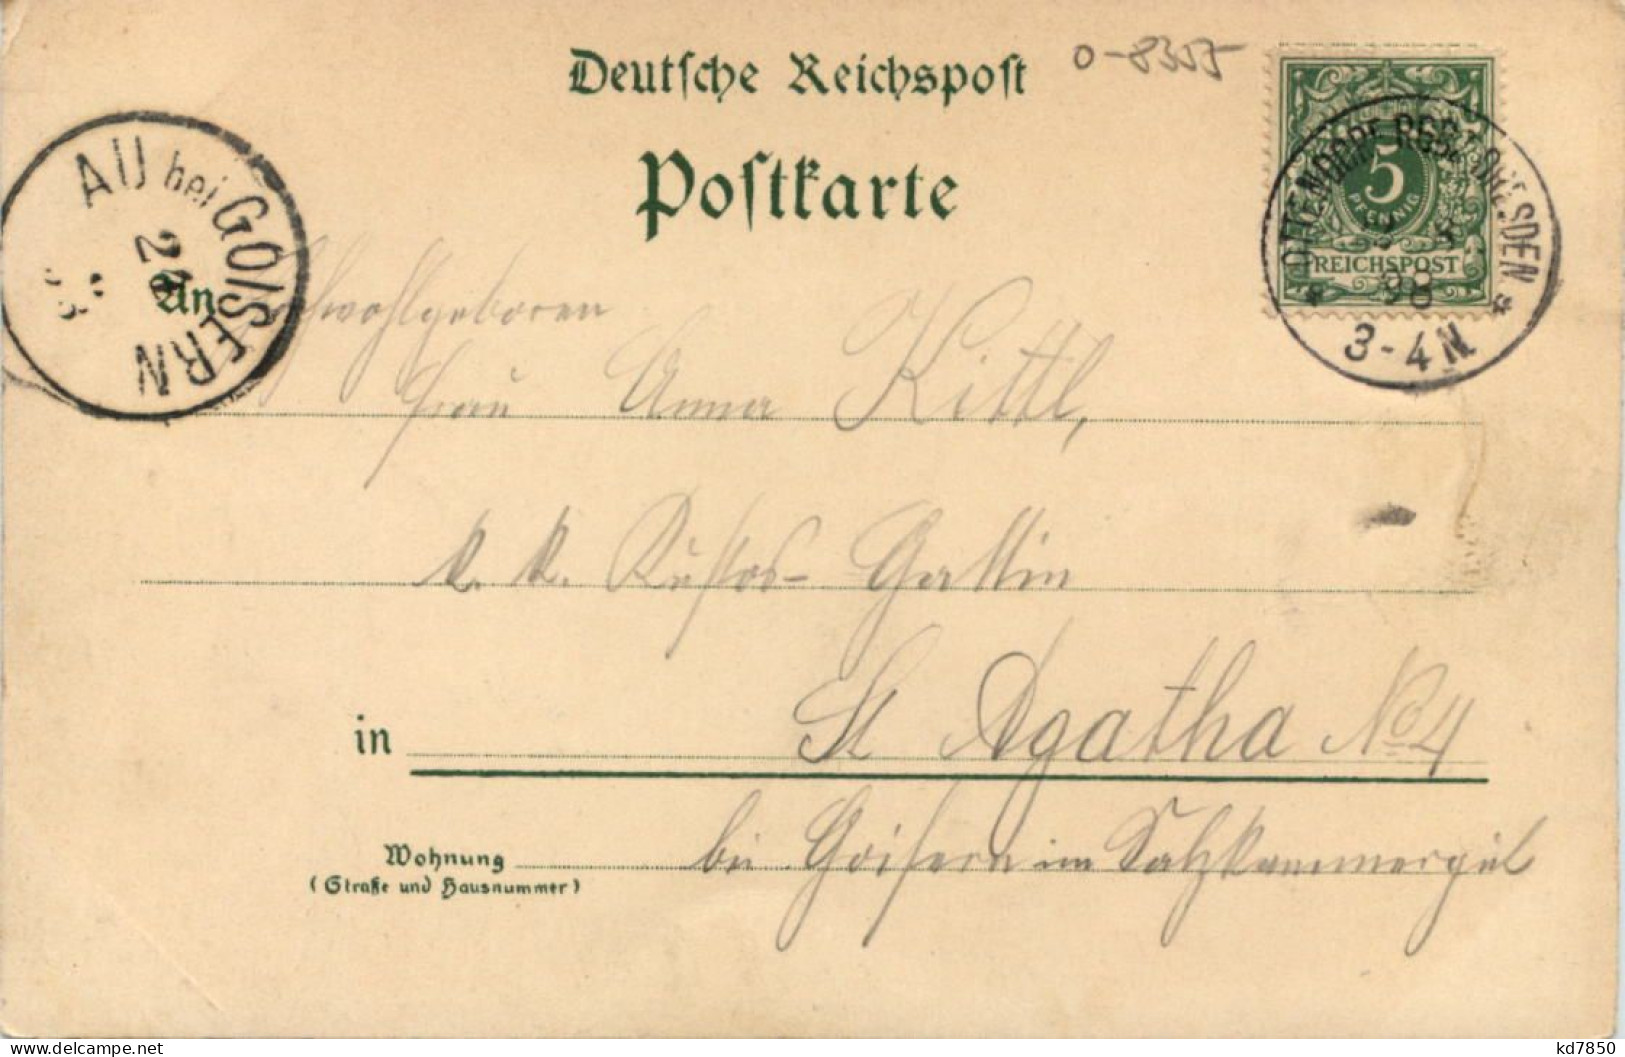 Deutsche Reichspost
0-8355
Postkarte
5
PFENNIG
REICHSPOST
DRESDEN
98
3-4 N
AU bei GOISERN
An
Hochwohlgeboren
Frau Anna Kittl,
k. k. Custos- Gattin
in St Agatha No 4
Wohnung bei Goisern im Salzkammergut
(Straße und Hausnummer)
kd7850